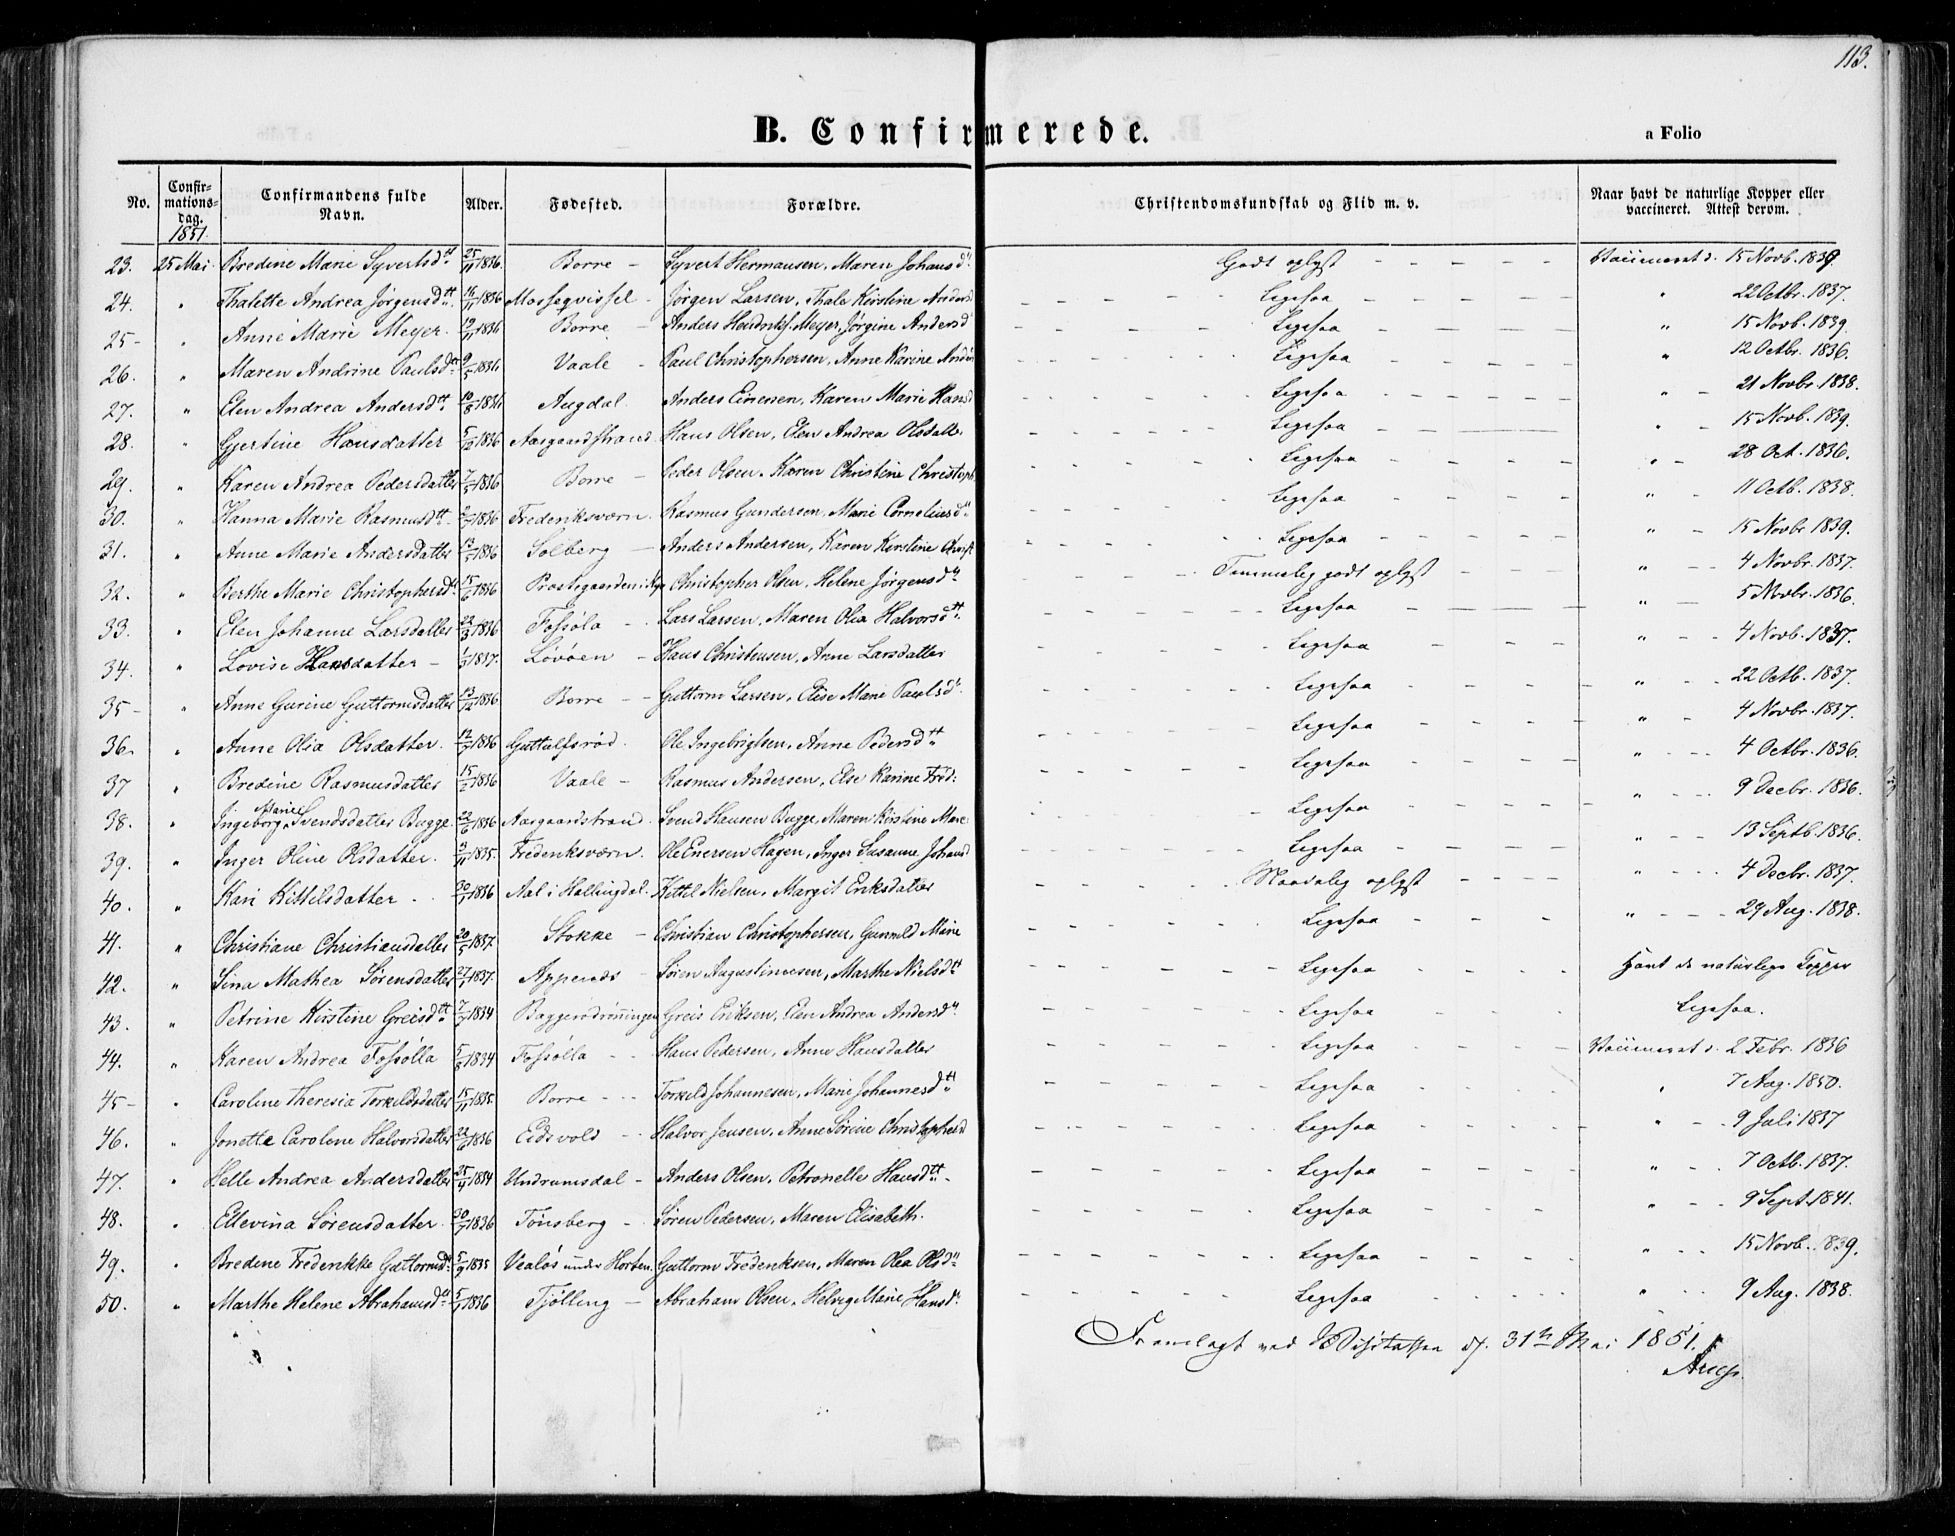 113.
B. Confirmerede.
a Folio
No. Confirmations-dag. 1851 Confirmandens fulde Navn. Alder. Fødested. Forældre. Christendomskundskab og Flid m. v. Naar havt de naturlige Kopper eller vaccineret. Attest derom.
23. 25 Mai Bredine Marie Syvertsdtt 25/11 1836. Borre - Syvert Hermansen, Maren Johansd Godt oplyst - - - - Vaccineret d. 15 Novb. 1839.
24. " Thalette Andrea Jørgensdtt. 16/11 1836 Jørgen Larsen, Thale Kirstine Andersd Ligesaa " 22 Octbr. 1837.
25- " Anne Marie Meyer. 19/11 1836 Borre - Anders Meyer, Jørgine Andersd Ligesaa " 15 Novb. 1839.
26. " Maren Andrine Paulsdtt 9/5 1836 Vaale - Paul Christophersen, Anne Karine Ligesaa " 12 Octbr. 1836.
27. " Elen Andrea Andersdtt. 10/8 1836 Augdal. Anders Karen Marie Hansd Ligesaa " 21 Novbr. 1838.
28. " Gjertine Hansdatter 5/12 1836 Aasgaardstrand. Hans Olsen, Elen Andrea Ligesaa " 15 Novb. 1839.
29. " Karen Andrea Pedersdatter 7/5 1836 Borre - Peder Olsen, Karen Christine Christoph. Ligesaa " 28 Oct. 1836.
30. " Hanna Marie Rasmusdtt. 1836 Frederiksværn. Rasmus Gundersen, Marie Corneliusd Ligesaa " 11 Octb. 1838.
31. " Anne Marie Andersdatter 1836 Solberg - Anders Andersen, Karen Kirstine Ligesaa " 15 Novbr 1839.
32. " Berthe Marie Christophersd 15/6 1836 Christopher Olsen, Helene Jørgensdtt Temmelig godt oplyst " 4 Novbr. 1837.
33. " Elen Johanne Larsdatter 22/3 1836 Fossøla - Lars Larsen, Maren Olia Halvorsdtt. Ligesaa " 5 Novbr. 1836.
34. " Lovise Hansdatter - 1837. Løvøen - Hans Christensen, Anne Larsdatter Ligesaa " 4 Novb. 1837.
35- " Anne Gurine Guttormsdatter 13/12 1836 Borre - Guttorm Larsen, Elise Marie Paulsd. Ligesaa " 22 Octb. 1837.
36. " Anne Olia Olsdatter. 12/7 1836 Guttulfsrød. Ole Ingebrigtsen, Anne Pedersdtt Ligesaa " 4 Novbr. 1837.
37 " Bredine Rasmusdatter 15/2 1836 Vaale - Rasmus Andersen, Else Karine Fred: Ligesaa " 4 Octbr. 1836.
38. " Ingeborg Marie Svendsdatter Bugge. 22/6 1836 Aasgaardstrand. Svend Hansen Bugge, Maren Kirstine Ligesaa " 9 Decbr. 1836.
39. " Inger Oline Olsdatter. 9/11 1835. Frederiksværn. Ole Enersen Hagen, Inger Susanne Johansd Ligesaa " 13 Septb. 1836.
40. " Kari Kittilsdatter. 30/1 1836 Aal i Hallingdal. Kittel Nielsen, Margit Eriksdatter Maadelig oplyst " 4 Decbr. 1837.
41. " Christiane Christiansdatter 20/5 1837. Stokke - Christian Christophersen, Gunnild Marie Ligesaa " 29 Aug. 1838.
42. " Sina Mathea Sørensdatter 27/1 1837. Appenæs - Søren Augustinusen, Marthe Nielsdtt Ligesaa Havt de naturlige Kopper
43. " Petrine Kirstine Greisdtt 7/7 1834 Baggerødrønningen Greis Eriksen, Elen Andrea Andersd. Ligesaa Ligesaa.
44. " Karen Andrea Fossølla 5/8 1834 Fossølla - Hans Pedersen, Anne Hansdatter Ligesaa Vaccineret d. 2 Febr. 1836
45- " Caroline Theresia Torkildsdatter 15/11 1835. Borre - Torkild Johannesen, Marie Johannesdtt Ligesaa " 7 Aug. 1850.
46. " Jonette Caroline Halvorsdatter 22/6 1836 Eidsvold - Halvor Jensen, Anne Sørine Christophersd Ligesaa " 9 Juli 1837
47. " Helle Andrea Andersdatter 25/4 1834 Undrumsdal - Anders Olsen, Petronelle Hansdtt. Ligesaa " 7 Octb. 1837.
48. " Ellevina Sørensdatter. 30/7 1836 Tønsberg - Søren Pedersen, Maren Elisabeth. Ligesaa " 9 Sept. 1841.
49. " Bredine Frederikke Guttormsd 5/9 1835 Vealøs under Horten. Guttorm Frederiksen, Maren Olea Olsd Ligesaa " 15 Novb. 1839.
50. " Marthe Helene Abrahamsdtt 5/1 1836 Tjølling - Abraham Olsen, Helvig Marie Hansd. Ligesaa " 9 Aug. 1838.
Fremlagt ved Visitatsen d. 31te Mai 1851.
Arup.